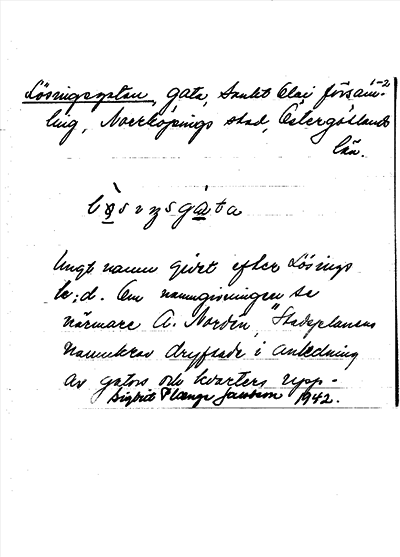 1-2
Lösingsgatan, gata, Sankt Olai försam-
ling, Norrköpings stad, Östergötlands
län.
lösiŋsgata
Ungt namn givet efter Lösings
h:d. Om namngivningen se
närmare A. Nordén, "Stadsplanens
namnkrav dryftade i anledning
av gators och kvarters upp-
Sigbrit Plænge Jacobson 1942.